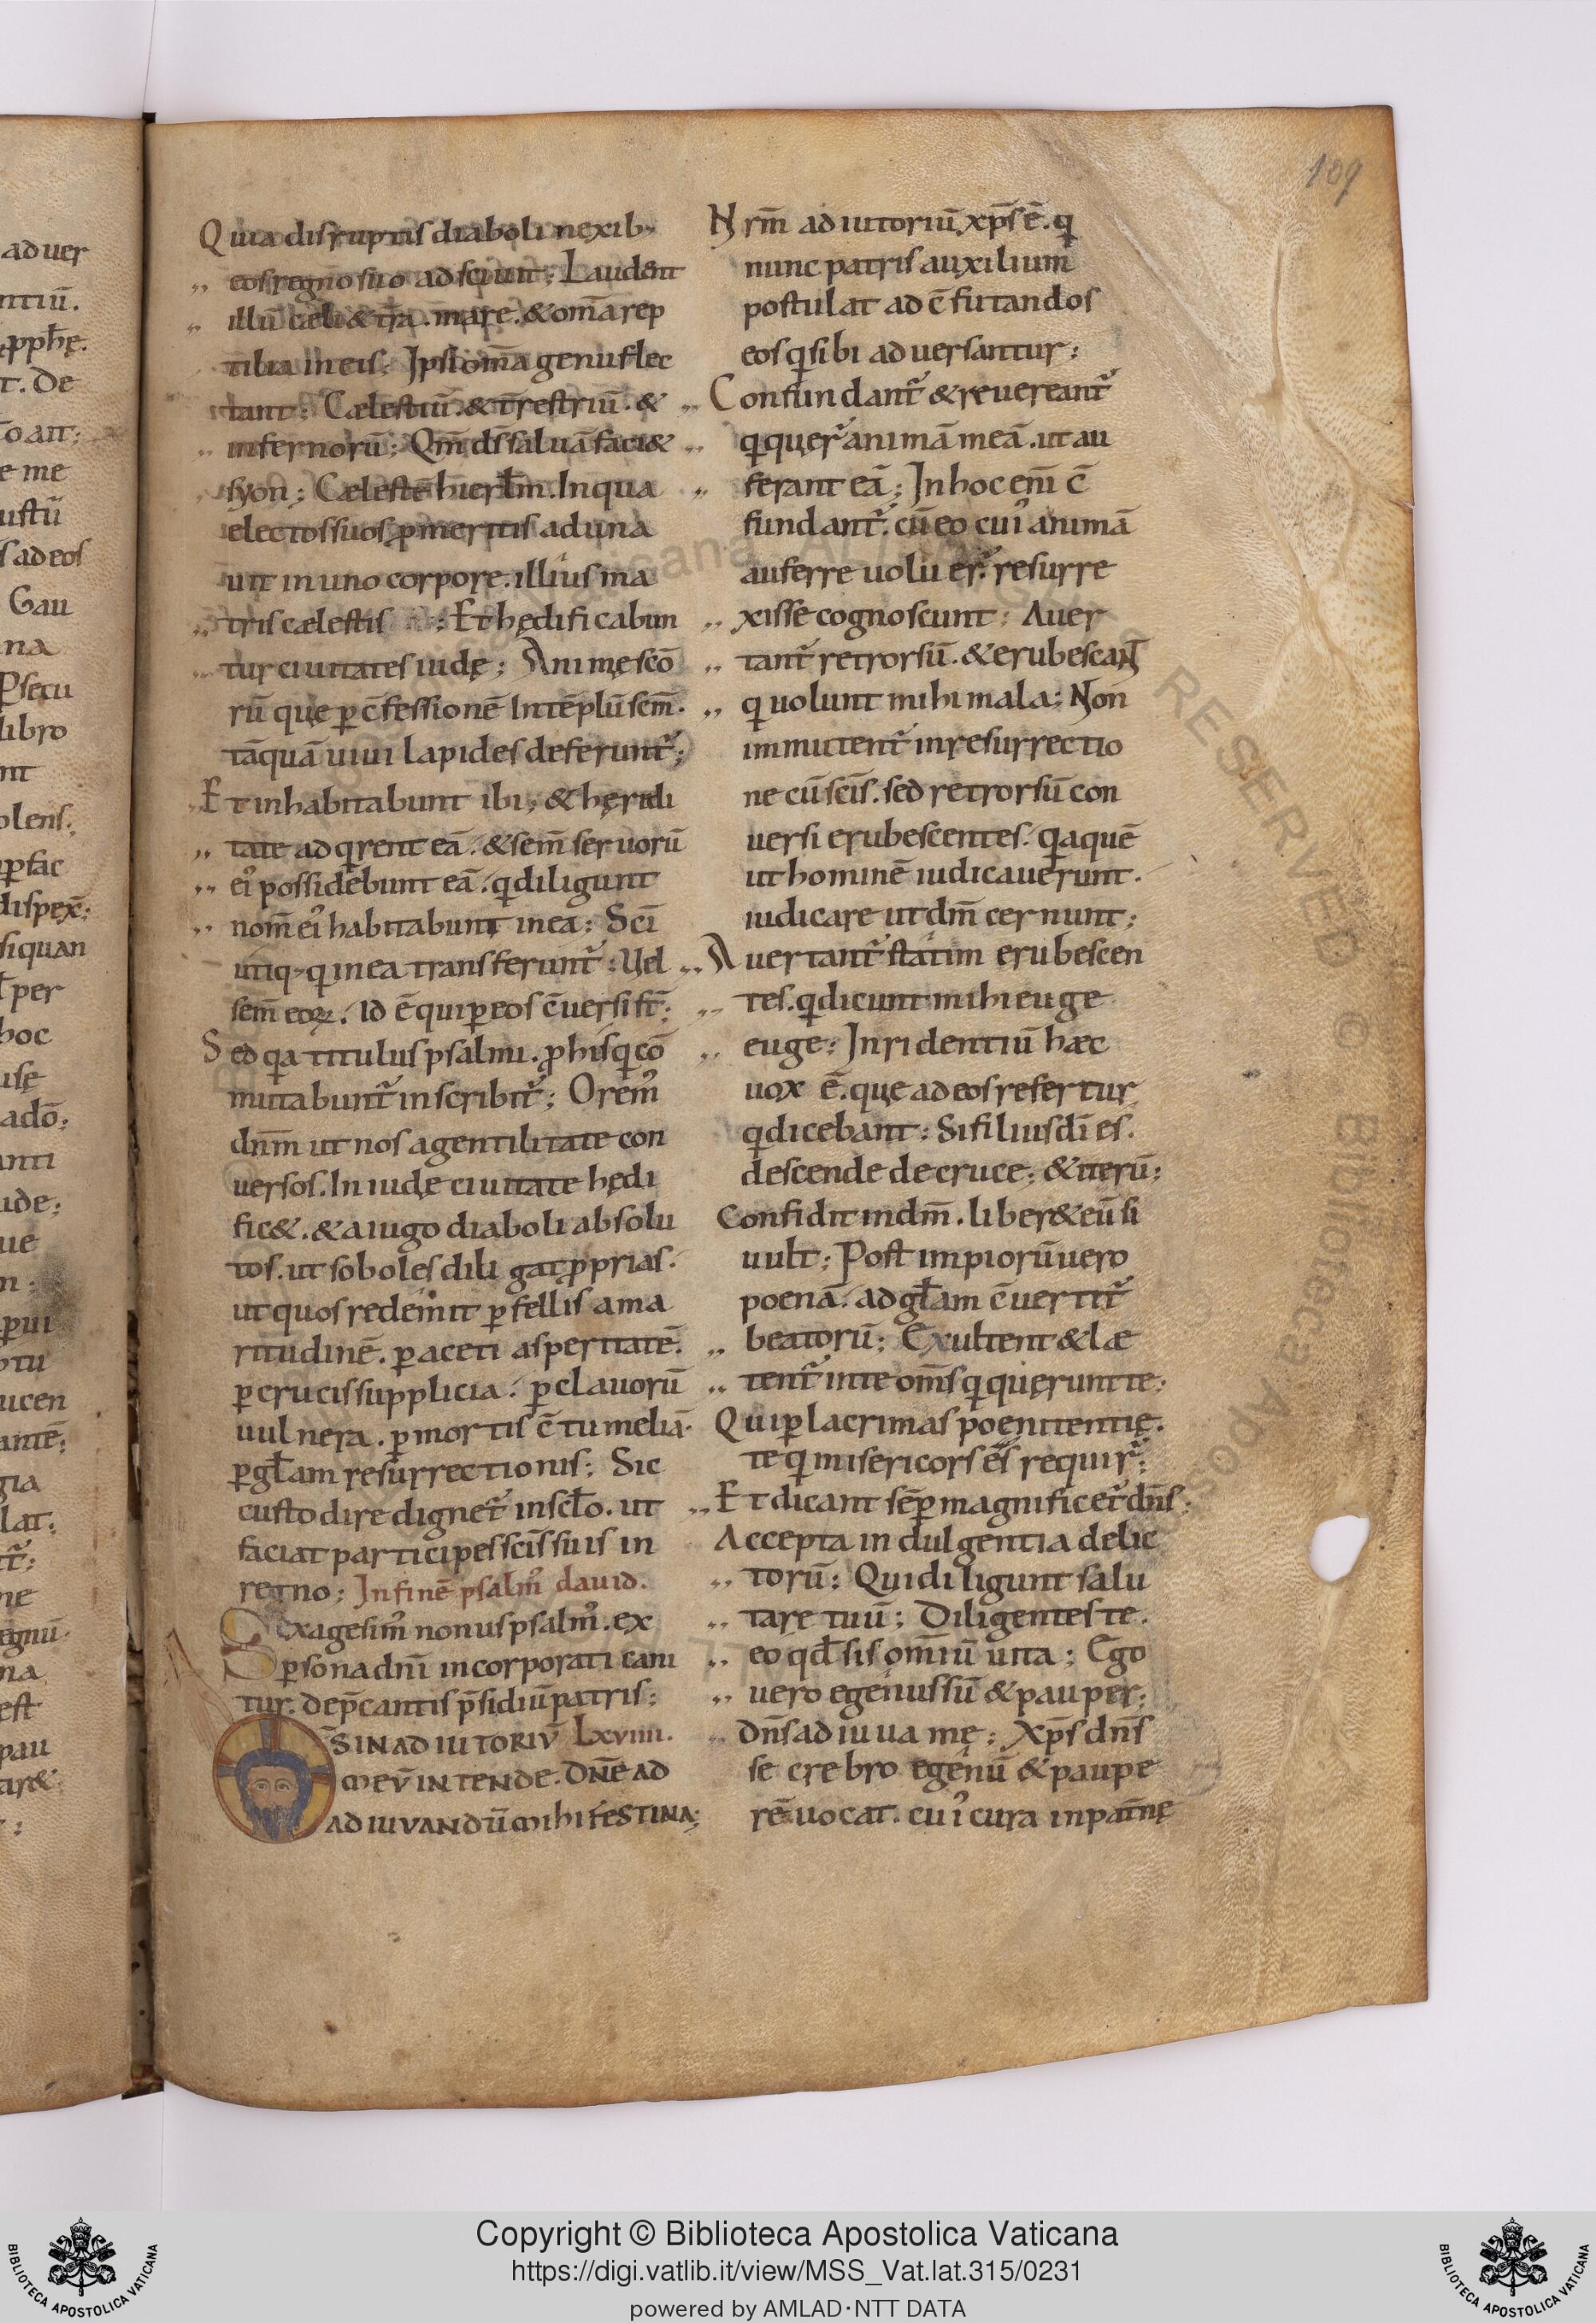 109
Quia disruptis diaboli nexib;
eos regno suo adsciunt; Laudent
illū cæli & tr̄a. mare. & om̄a rep
tilia in eis; Ipsi om̄a genu flec
tant; Cælestiū. & tr̄estriū. &
infernorū; Qm̄ ds̄ saluā faci&
syon; Cælestē hierłm. In qua
electos suos p meritis aduna
uit in uno corpore. illius ma
tris cælestis; Et hędificabun
tur ciuitates iudę; Animę scō
rū quę p c̄fessionē In tēplū sem̄.
tāquā uiui lapides deferunt᷑;
Et inhabitabunt ibi; & hęredi
tate adqrent eā. & sem̄ seruorū
ei᾿ possidebunt eā. q diligunt
nom̄ ei᾿ habitabunt in ea; Sci̅
utiq; q in ea transferunt᷑; Uel
sem̄ eoꝝ. Id ē qui p eos c̄uersi st̄;
Sed qa titulus psalmi. p his q cō
mutabunt᷑ inscribit᷑; Orem᾿
dnm̄ ut nos a gentilitate con
uersos. In iudę ciuitate hędi
fic&. & a iugo diaboli absolu
tos. ut soboles diligat pprias.
ut quos redemit p fellis ama
ritudinē. p aceti asperitatē.
p crucis supplicia. p clauorū
uulnera. p mortis c̄tumeliā.
p głam resurrectionis; Sic
custodire dignet᷑ in scło. ut
faciat participes scis̄ suis in
regno; In finē psalm᾿ dauid.
Sexagesim᾿ nonus psalm᾿. ex
psona dni̅ incorporati cani
tur. dep̄cantis p̄sidiū patris;
DS̄ IN ADIUTORIV̄ Lxviiii.
MEV̄ INTENDE. DNĒ AD
ADIUVANDŪ MIHI FESTINA;
Nrm̄ adiutoriū xps̄ ē. q
nunc patris auxilium
postulat ad c̄futandos
eos q sibi aduersantur;
Confundant᷑ & reuereant᷑
q quer᷑ animā meā. ut au
ferant eā; In hoc em̄ c̄
fundant᷑. cū eo cui᾿ animā
auferre uoluer᷑. resurre
xisse cognoscunt; Auer
tant᷑ retrorsū. & erubescant̄
q uolunt mihi mala; Non
immutent᷑ in resurrectio
ne cū scis̄. sed retrorsū con
uersi erubescentes. qa quē
ut hominē iudicauerunt.
iudicare ut dm̄ cernunt;
Auertant᷑ statim erubescen
tes. q dicunt mihi euge
euge; Inridentiū hæc
uox ē. quę ad eos refertur
q dicebant; Si filius di̅ es.
descende de cruce; & iterū;
Confidit in dm̄. liber& eū si
uult; Post impiorū uero
poenā. ad głam c̄uertit᷑
beatorū; Exultent & læ
tent᷑ in te om̄s q quęrunt te;
Qui p lacrimas poenitentię.
te q misericors es̄ requir᷑;
Et dicant sēp magnificet᷑ dns̄;
Accepta indulgentia delic
torū; Qui diligunt salu
tare tuū; Diligentes te.
eo qđ sis om̄iū uita; Ego
uero egenus sū & pauper;
Dns̄ adiuua mę; Xps̄ dns̄
se crebro egenū & paupe
rē uocat. cui᾿ cura in patr̄nę
Copyright © Biblioteca Apostolica Vaticana
https://digi.vatlib.it/view/MSS_Vat.lat.315/0231
powered by AMLAD·NTT DATA
BIBLIOTECA APOSTOLICA VATICANA
BIBLIOTECA APOSTOLICA VATICANA